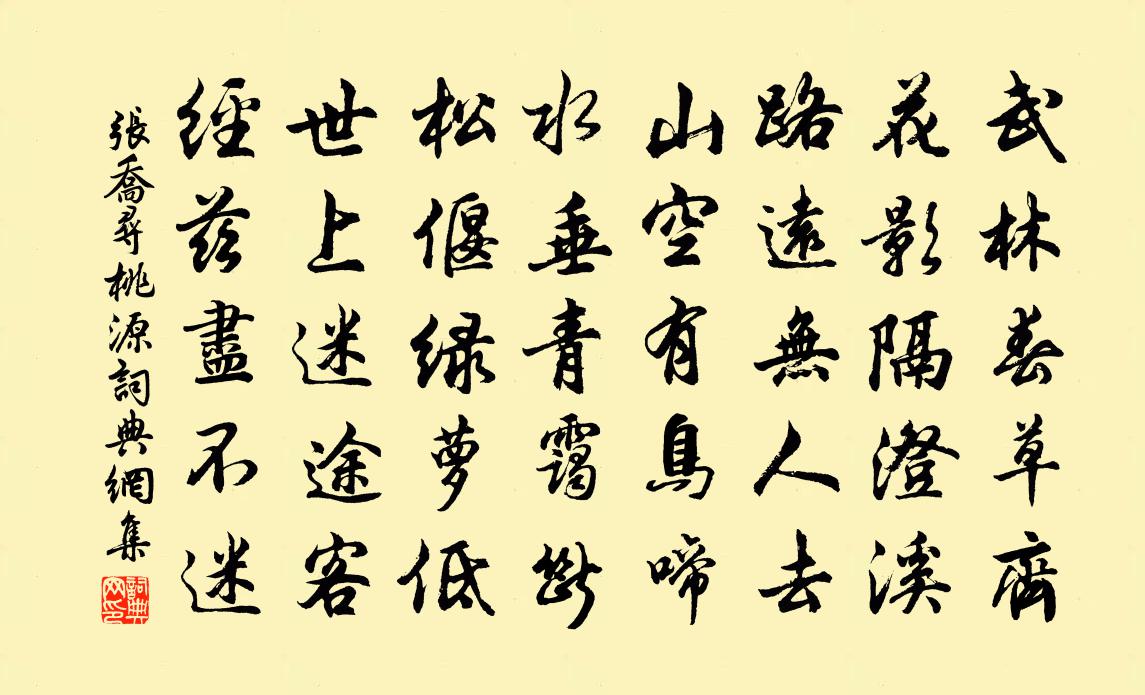 武林春草齊
花影隔澄溪
路遠無人去
山空有鳥啼
水垂青靄斷
松偃綠蘿低
世上迷途客
經茲盡不迷
張喬尋桃源詞典網集
詞典
网印